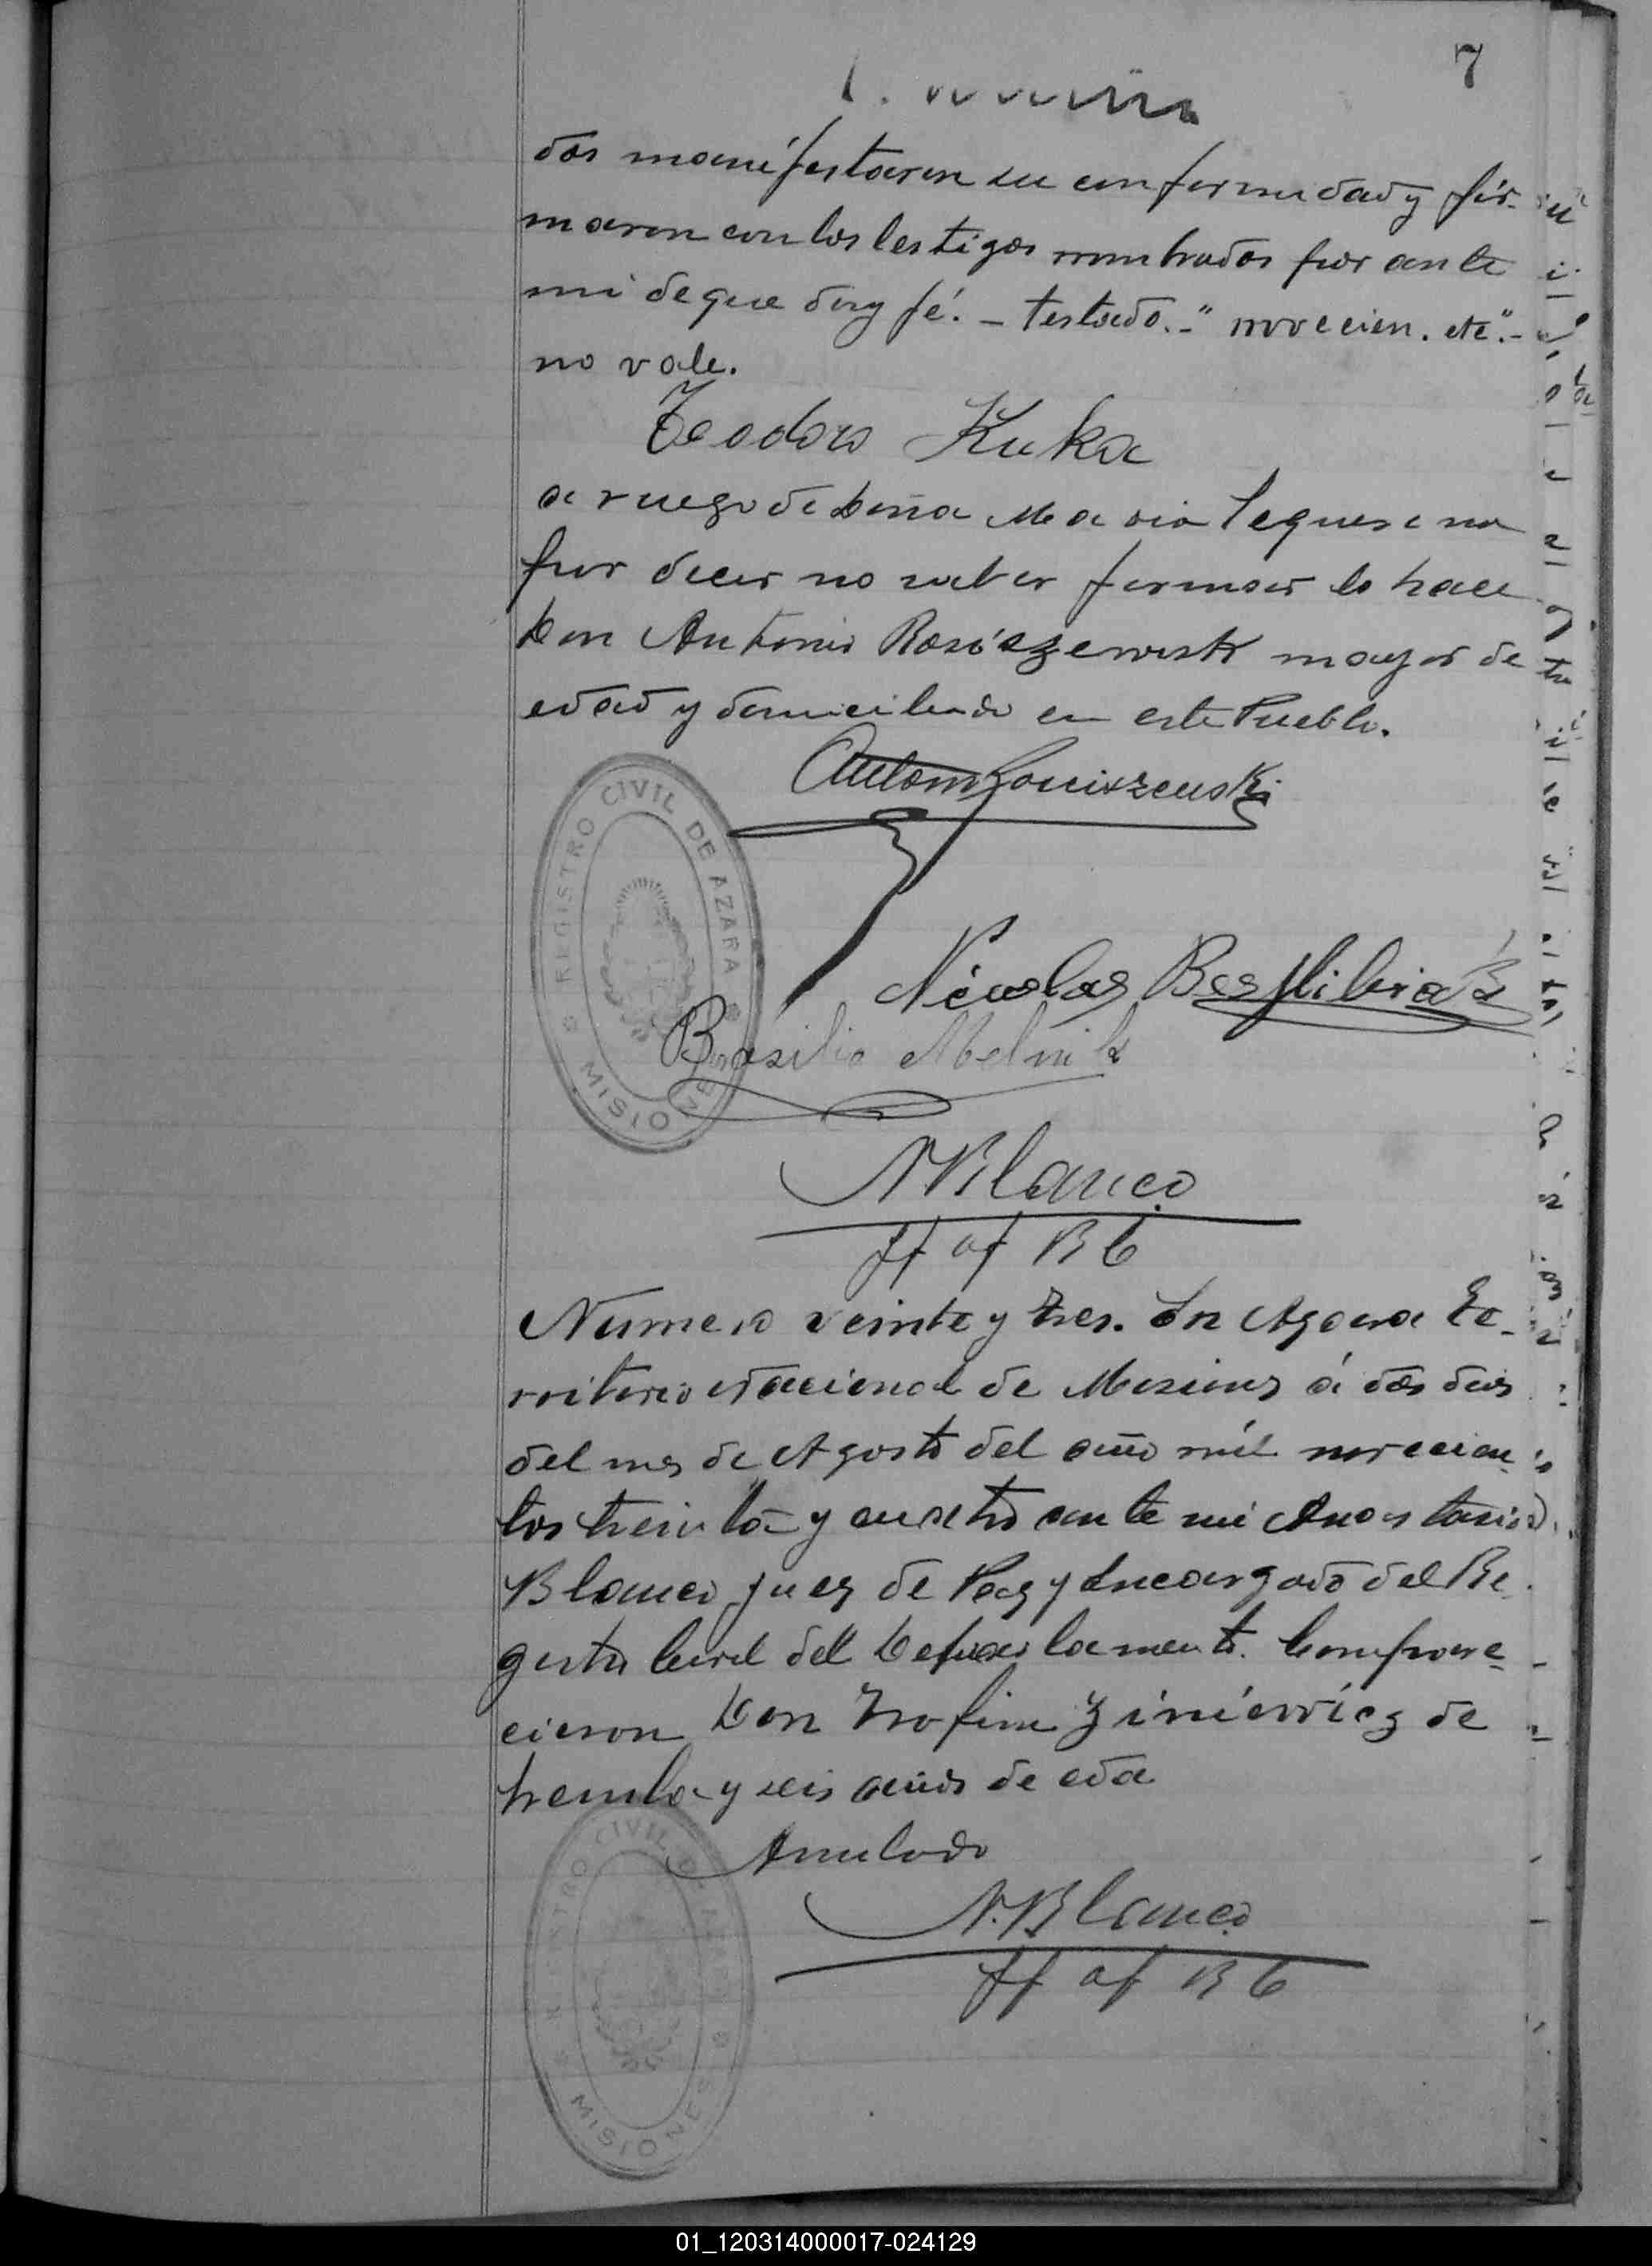 7
dos manifestaron su conformidad y fir-
maron con los testigos nombrados por ante
mi de que doy fé. – testado.-" novecien. etc".-
no vale.
Teodoro Kuka
a ruego de Doña Maria
por decir no saber firmar lo hace
Don Antonio Rosiszewsk mayor de
edad y domiciliado en este Pueblo.
REGISTRO CIVIL DE AZARA
MISIONES
Nicolas
Basilio Melnik
A Blanco
Numero veinte y tres. En Azara Te-
rritorio Nacional de Misiones á dos dias
del mes de Agosto del año mil novecien-
tos treinta y cuatro ante mi Anastasio
Blanco Juez de Paz y Encargado del Re-
gistro Civil del Departamento. Compare-
cieron Don Trofim Ziniewicz de
treinta y seis años de eda
Anulado
A. Blanco
REGISTRO CIVIL DE AZARA
MISIONES
01_120314000017-024129